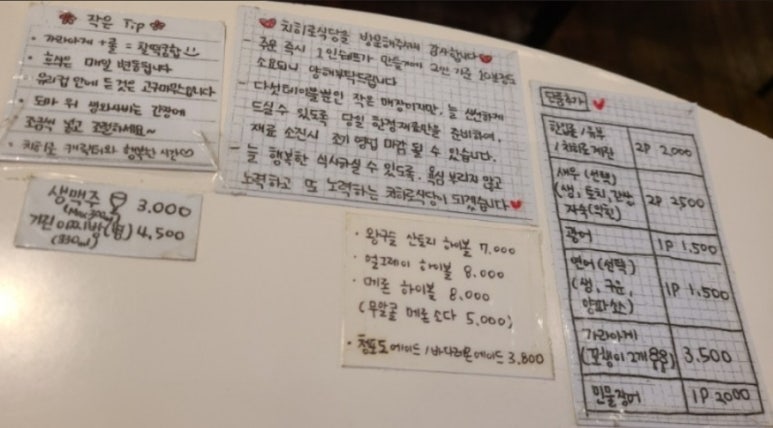 작은 Tip
• 가라아게 + 콜 = 찰떡궁합
• 후식은 매일 변동됩니다
• 유리컵 안에 든 것은 고추마요입니다
• 도마 위 생와사비는 간장에
조금씩 넣고 조절하세요~
• 치히로 캐릭터와 행복한 시간♡
치히로식당을 방문해주셔서 감사합니다
- 주문 즉시 1인셰프가 만들게되어 2인 기준 10분정도
소요되니 양해부탁드립니다
- 다섯테이블뿐인 작은 매장이지만, 늘 신선하게
드실 수 있도록 당일 한정재료만을 준비하여,
재료 소진시 조기 영업 마감 될 수 있습니다.
- 늘 행복한 식사하실 수 있도록, 욕심 부리지 않고
노력하고 또 노력하는 치히로식당이 되겠습니다
생맥주 3,000
기린 이찌방(병) 4,500
• 왕구슬 산토리 하이볼 7,000
• 얼그레이 하이볼 8,000
• 메론 하이볼 8,000
(무알콜 메론 소다 5,000)
• 청포도에이드 / 바다레몬에이드 3,800
단품추가
한입물 / 유부
/ 치히로계란 2P 2,000
새우 (선택)
(생, 간장
자숙(익힌) 2P 2500
광어 1P 1,500
연어 (선택)
(생, 구운,
양파소스) 1P 1,500
가라아게
(꼬챙이 2개) 3,500
민물장어 1P 2000